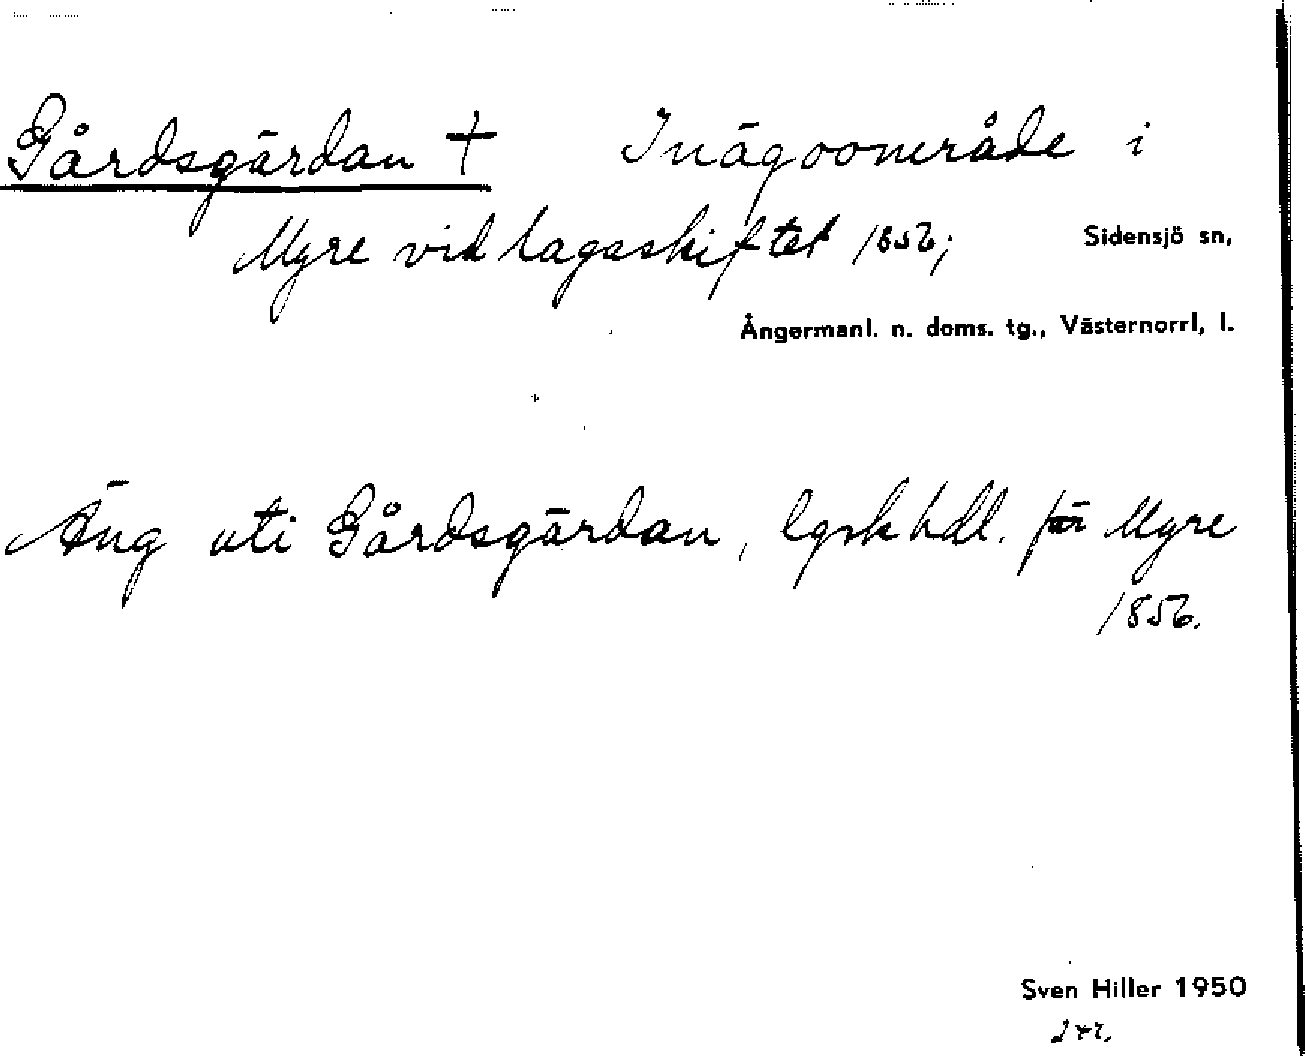 Gårdsgärdan † Inägoområde i
Myre vid lagaskiftet 1856; Sidensjö sn,
Ångermanl. n. doms. tg., Västernorrl, l.
Äng uti Gårdsgärdan, lgsk hdl. för Myre
1856.
Sven Hiller 1950